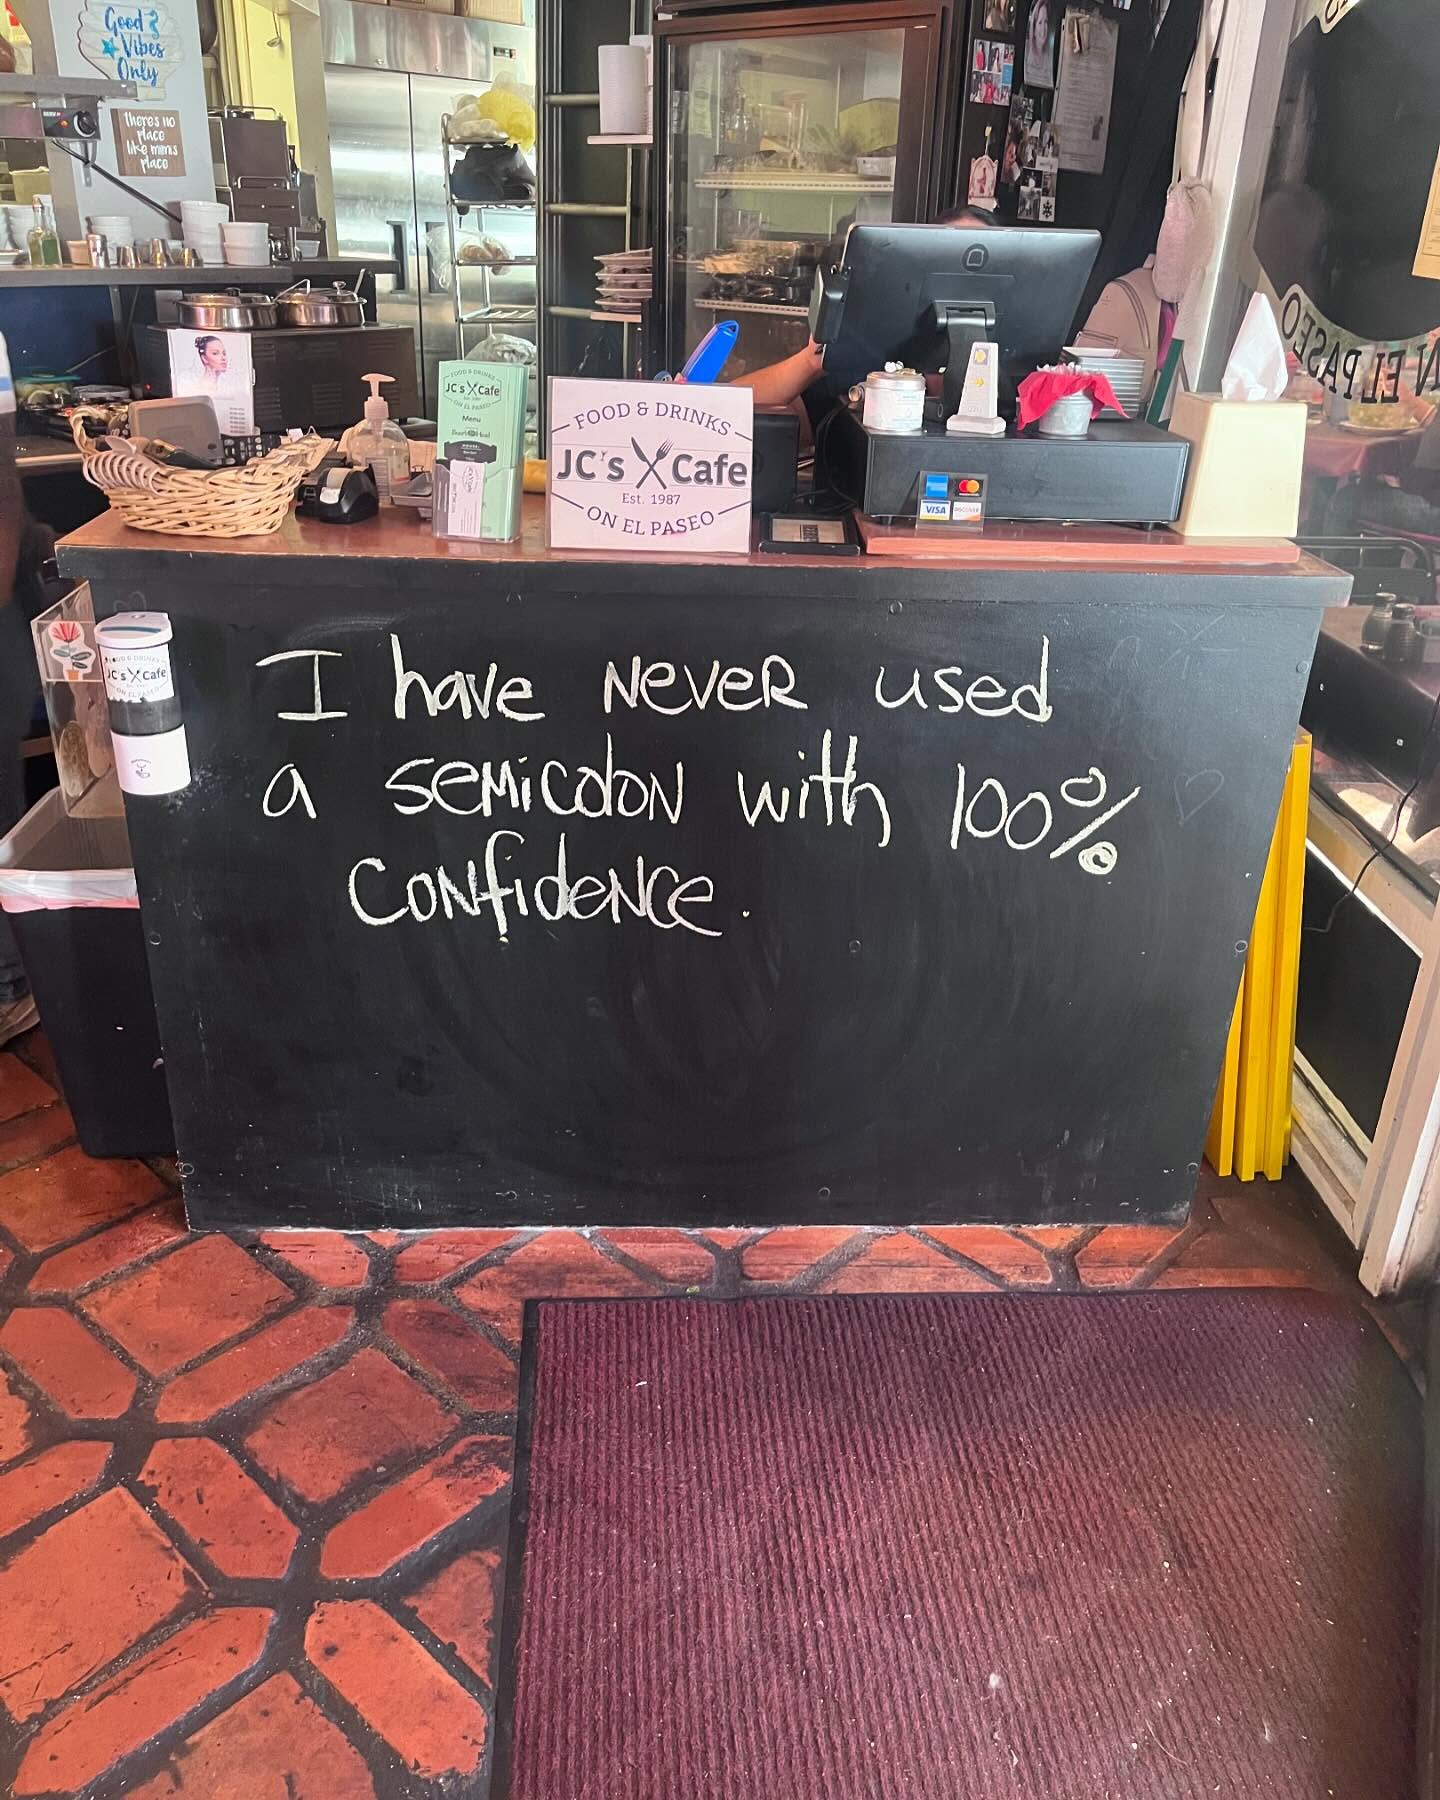 Good
Vibes
Only
there's no
place
like mimi's
place
JC's Cafe
ON EL PASEO
Menu
FOOD & DRINKS
JC's Cafe
Est. 1987
ON EL PASEO
VISA
DISCOVER
N EL PASEO
FOOD & DRINKS
JC's Cafe
ON EL PASEO
I have NeveR used
a semicoloN with 100%
CoNfideNce.